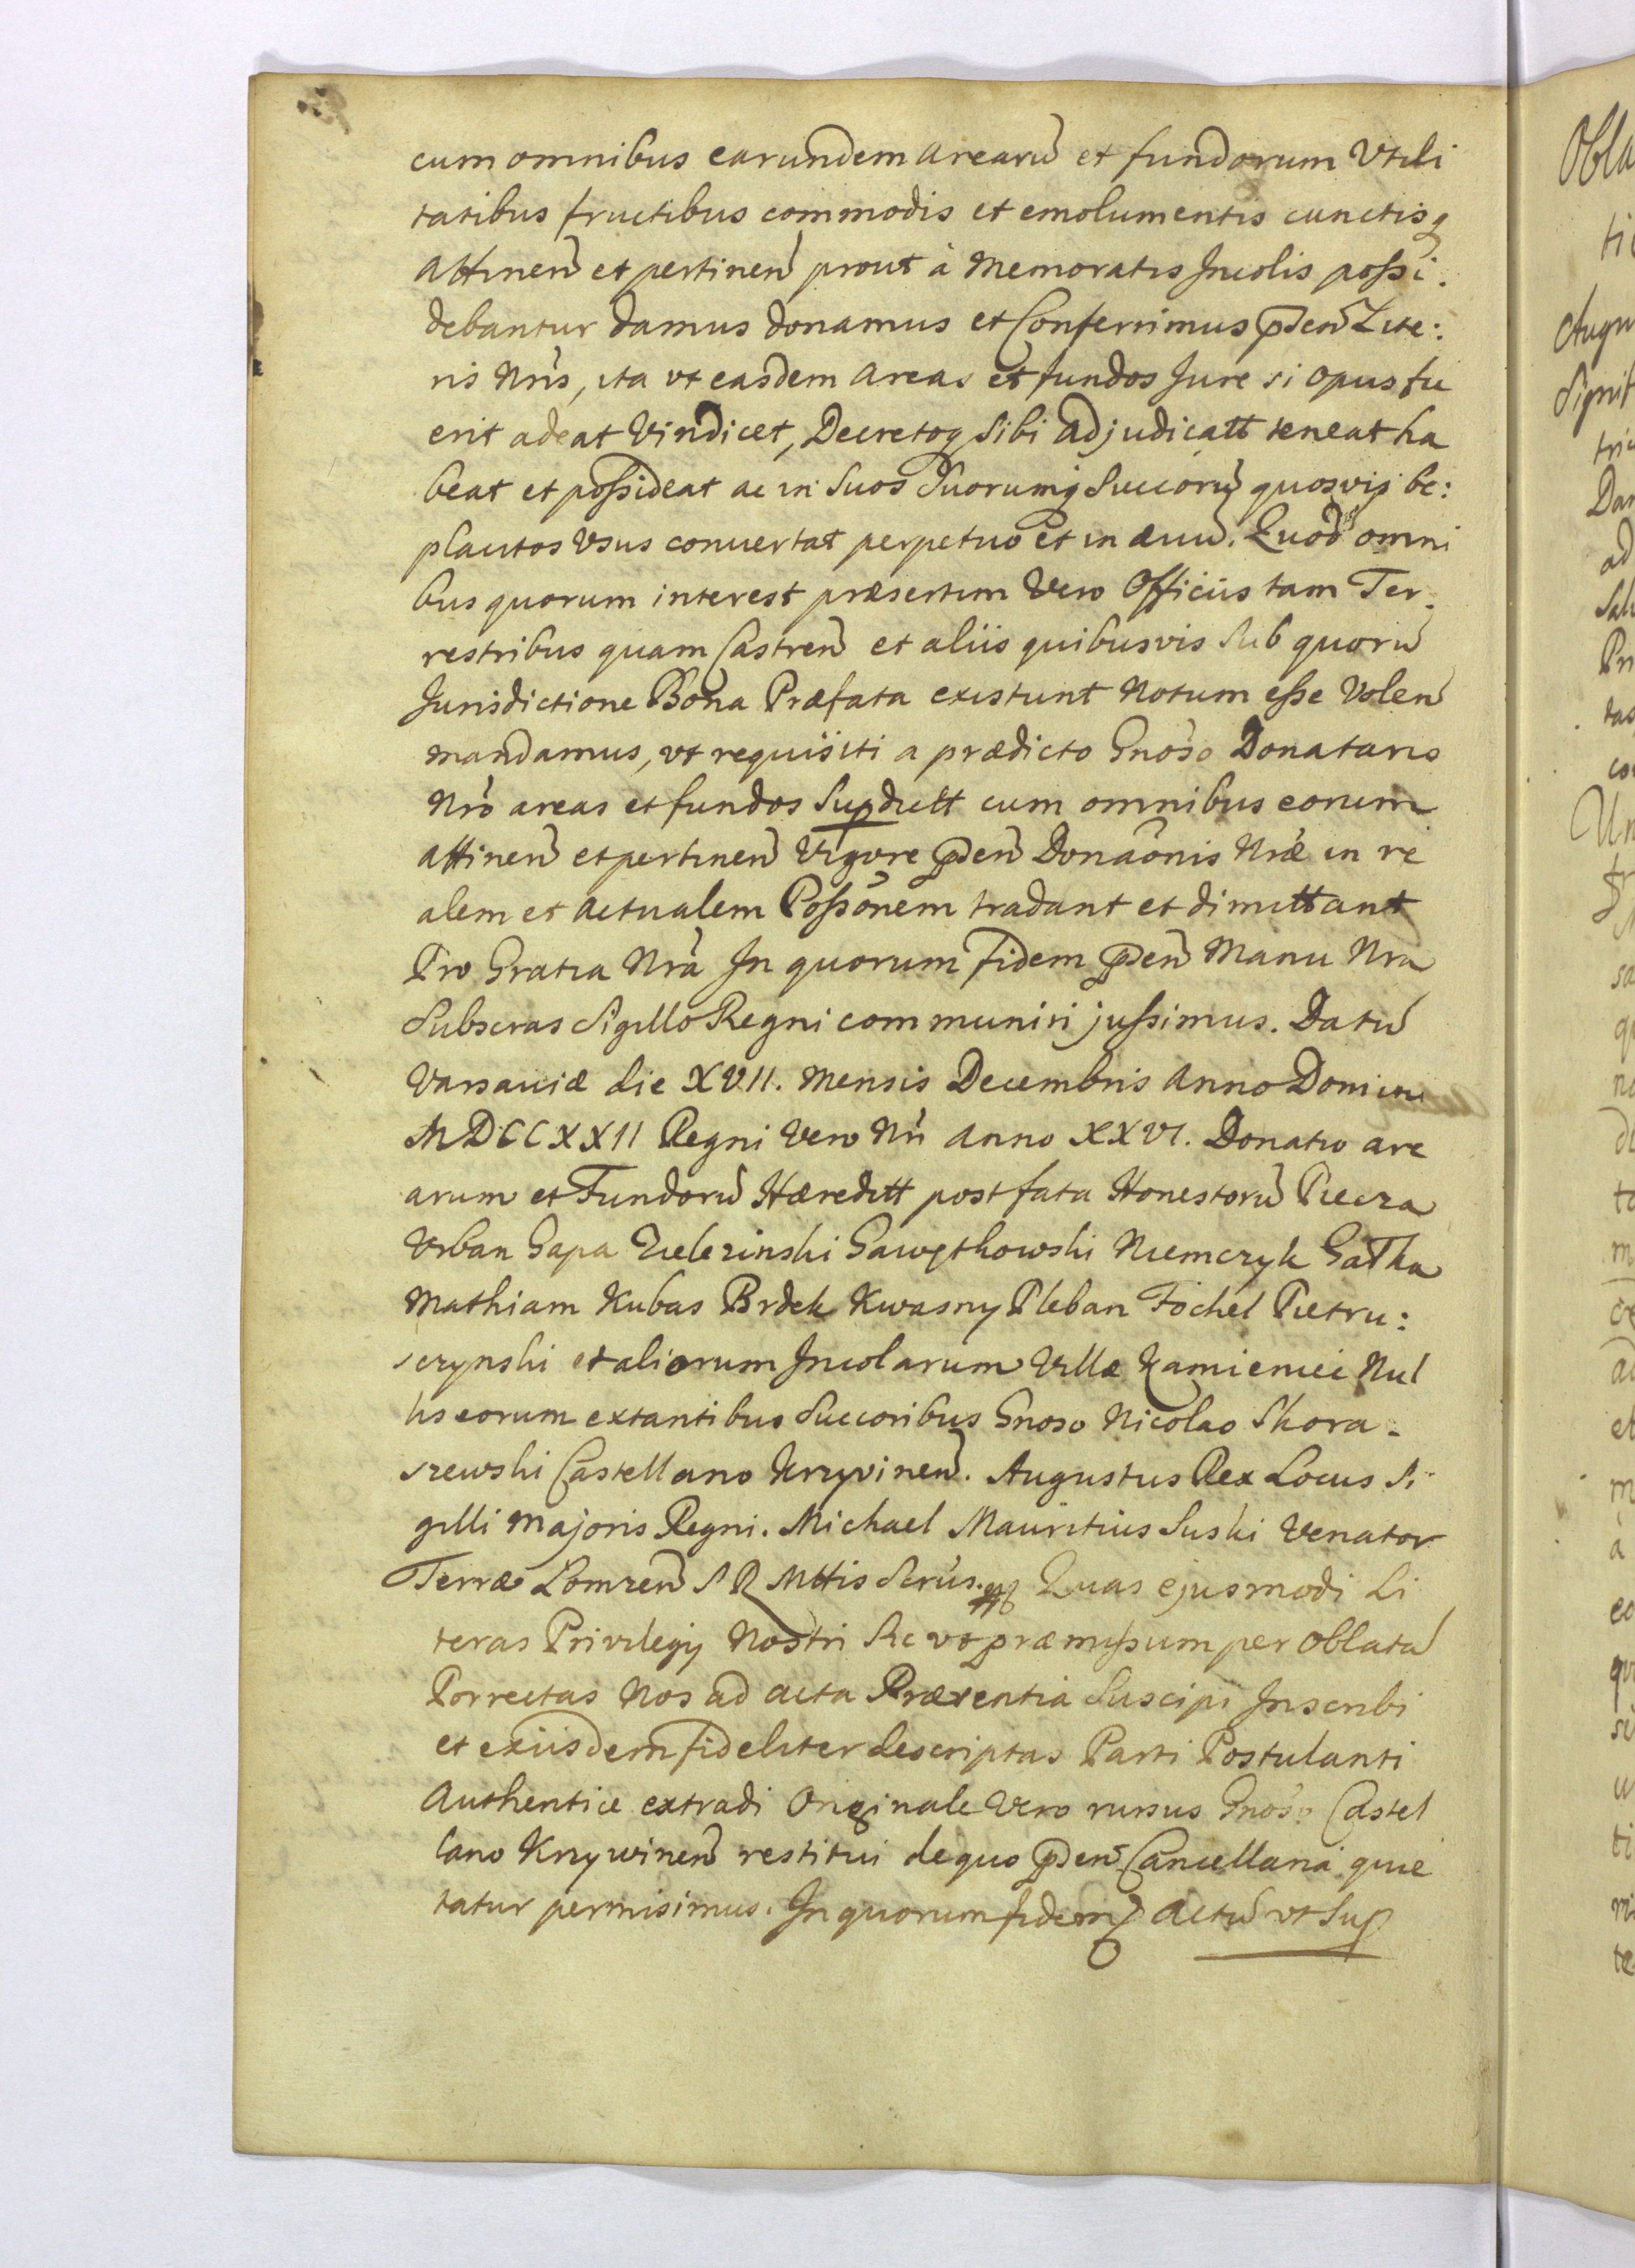 cum omnibus earundem arearũ et fundorum Vtili
tatibus fructibus commodis et emolumentis cunctisq
Attinen̄ et pertinen̄ prout à Memoratis Incolis possi.
debantur damus donamus et Conferrimus p̄den̄ Lite:
ris Nr̄is, ita vt easdem Areas et fundos Jure si opus fu
erit adeat Vindicet, Decretoq Sibi Adjudicatt teneat ha
beat et possideat ac in Suos Suorumq Succorũ quosvis be:
placitos Vsus conuertat perpetuo et in æuũ. Quod omni
bus quorum interest præsertim Vero Officiis tam Ter.
restribus quam Castren̄ et aliis quibusvis Sub quorũ
Jurisdictione Bona Præfata existunt Notum esse Volen̄
mandamus, vt requisiti a prædicto Gnoso Donatario
Nr̄o areas et fundos Supdictt cum omnibus eorum
attinen̄ et pertinen̄ Vigore p̄den̄ Donaōnis Nr̄æ in re
alem et Actualem Possōnem tradant et dimittant
Pro Gratia Nr̄a In quorum fidem p̄den̄ Manu Nra
Subscras Sigillo Regni communiri jussimus. Datũ
Varsauiæ die XVII. Mensis Decembris Anno Domini
MDCCXXII Regni Vero Nr̄i Anno XXVI. Donatio are
arum et Fundorũ Hæreditt post fata Honestorũ Piecza
Vrban Gapa Zielezinski Gawęthowski Niemczyk Gatka
Mathiam Kubas Brdek Kwasny Pleban Fochel Pietru:
sczynski et aliorum Incolarum Villæ Kamieniec Nul
lis eorum extantibus Succoribus Gnoso Nicolao Skora.
szewski Castellano Krzyvinen̄. Augustus Rex Locus Si
gilli Majoris Regni. Michael Mauritius Suski Venator
Terræ Lomzen̄ S R Mttis Scrus. Quas ejusmodi Li
teras Privilegij Nostri Sic vt præmissum per Oblatã
Porrectas Nos ad acta Præsentia Suscipi Inscribi
et exiisdem fideliter descriptas Parti Postulanti
Authentice extradi Originale Vero rursus Gnoso Castel
lano Krzywinen̄ restitui de quo p̄den̄ Cancellaria quie
tatur permisimus. In quorum fidem Actũ vt Sup